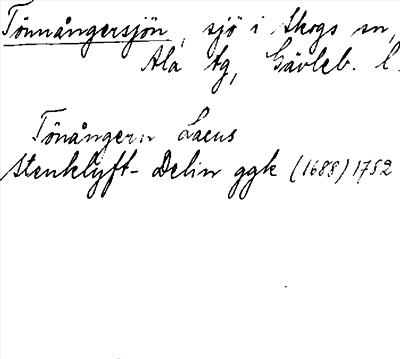 Tönnångersjön, sjö i Skogs sn,
Ala tg, Gävleb. l.
Tönångern Lacus
Stenklyft- Delin ggk (1688) 1752